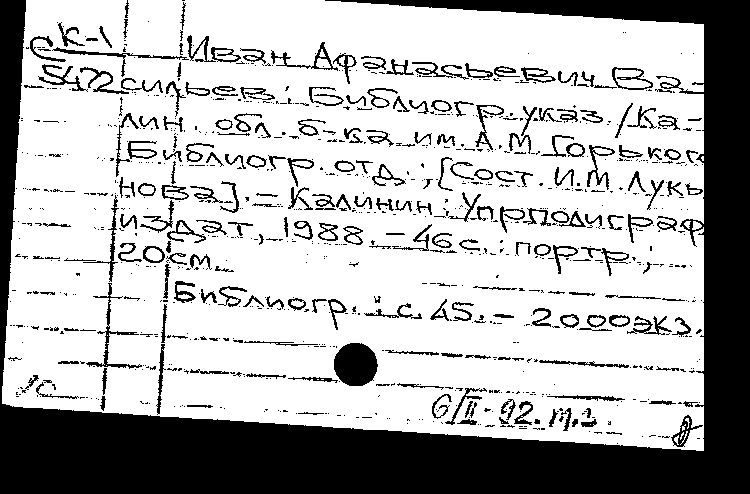 К-1
С 5472
Иван Афанасьевич Ва-
сильев : Библиогр. указ. / Ка-
лин. обл. б-ка им. А.М. Горького
Библиогр. отд. ; [Сост. И.М. Лукь
нова]. – Калинин : Упрполиграф
издат, 1988. – 46 с. : портр. ;
20 см.
Библиогр. : с. 45. – 2000 экз.
6/II-92. т.з.